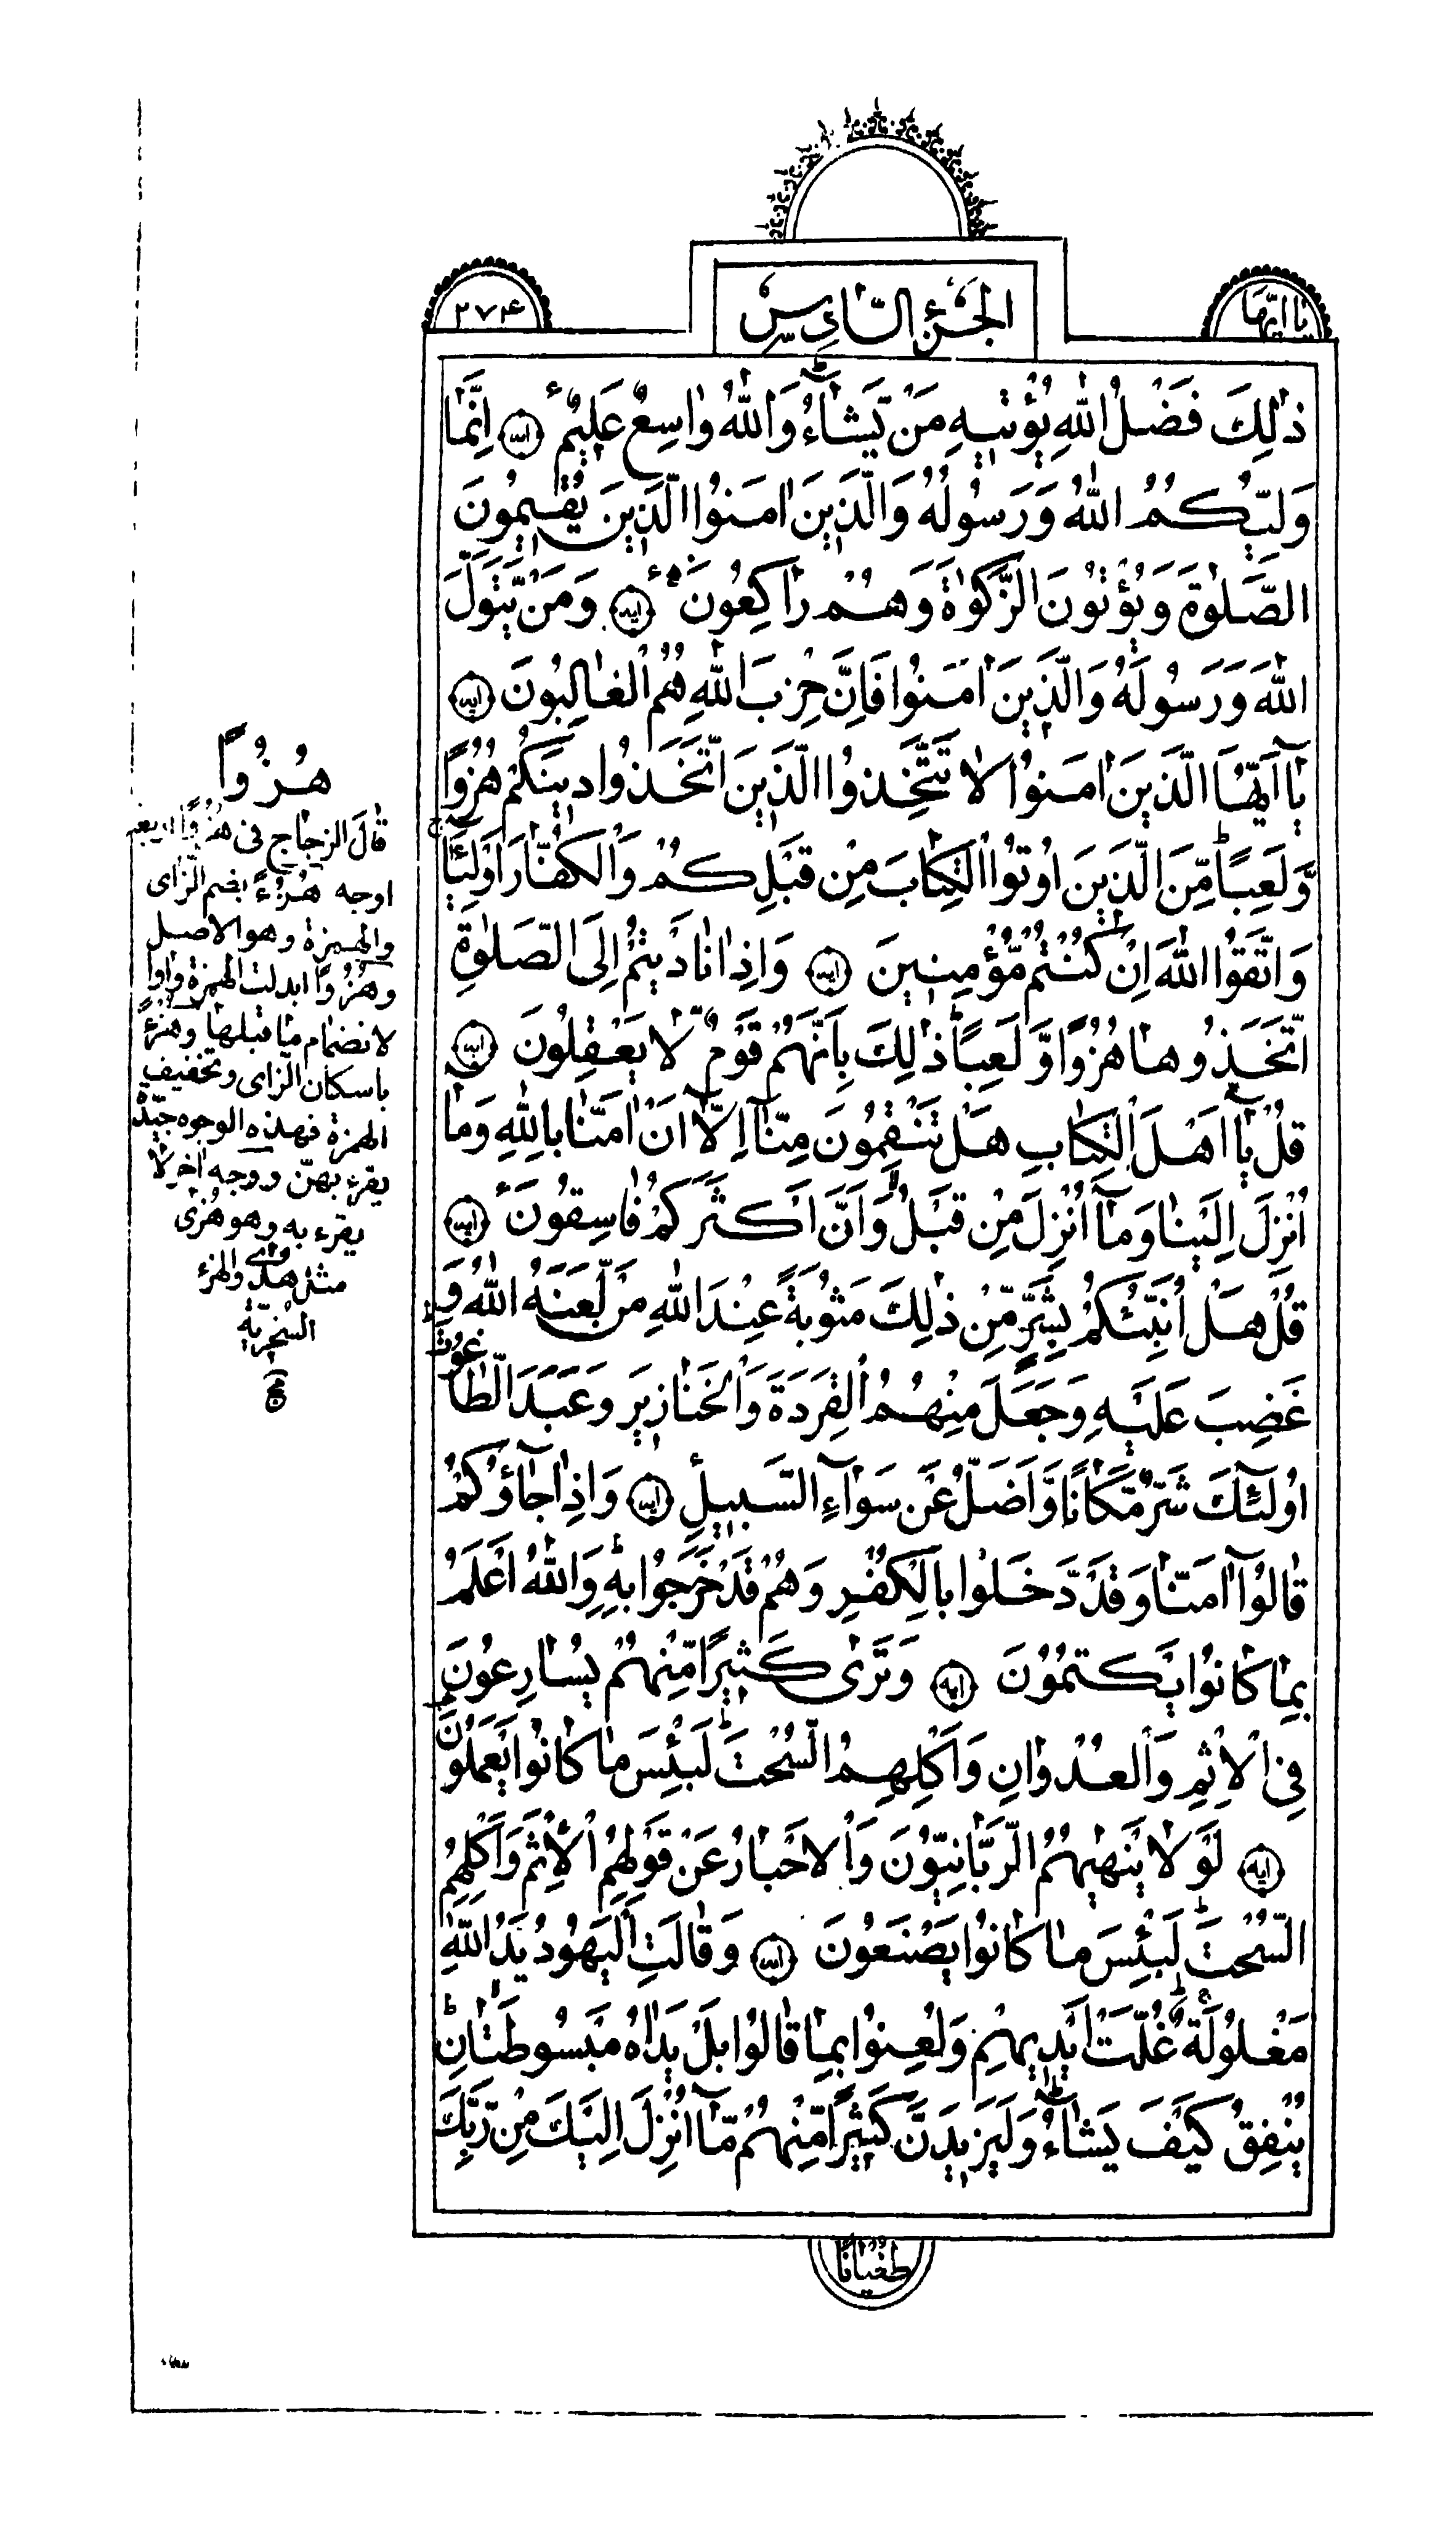 يا ايها
الجزء السادس
۲۷۴
ذٰلِكَ فَضْلُ اللّٰهِ يُؤْتيهِ مَنْ يَّشٰٓاءُ وَاللّٰهُ وٰاسِعٌ عَليمٌ ايه اِنَّمٰا
وَلِيُّكُمُ اللّٰهُ وَرَسُولُهُ وَالَّذينَ اٰمَنُوا الَّذينَ يُقيمُونَ
الصَّلٰوةَ وَيُؤْتُونَ الزَّكٰوةَ وَهُمْ رٰاكِعُونَ ايه وَمَنْ يَّتَوَلَّ
اللّٰهَ وَرَسُولَهُ وَالَّذينَ اٰمَنُوا فَاِنَّ حِزْبَ اللّٰهِ هُمُ الْغٰالِبُونَ ايه
يٰٓا اَيُّهَا الَّذينَ اٰمَنُوا لٰا تَتَّخِذُوا الَّذينَ اتَّخَذُوا دينَكُمْ هُزُوًا
وَّلَعِبًا مِّنَ الَّذينَ اُوتُوا الْكِتٰابَ مِنْ قَبْلِكُمْ وَالْكُفّٰارَ اَوْلِيٰٓاءَ
وَاتَّقُوا اللّٰهَ اِنْ كُنْتُمْ مُّؤْمِنينَ ايه وَاِذٰا نٰادَيْتُمْ اِلَى الصَّلٰوةِ
اتَّخَذُوهٰا هُزُوًا وَّلَعِبًا ذٰلِكَ بِاَنَّهُمْ قَوْمٌ لّٰا يَعْقِلُونَ ايه
قُلْ يٰٓا اَهْلَ الْكِتٰابِ هَلْ تَنْقِمُونَ مِنّٰٓا اِلّٰٓا اَنْ اٰمَنّٰا بِاللّٰهِ وَمٰا
اُنْزِلَ اِلَيْنٰا وَمٰٓا اُنْزِلَ مِنْ قَبْلُ وَاَنَّ اَكْثَرَكُمْ فٰاسِقُونَ ايه
قُلْ هَلْ اُنَبِّئُكُمْ بِشَرٍّ مِّنْ ذٰلِكَ مَثُوبَةً عِنْدَ اللّٰهِ مَنْ لَّعَنَهُ اللّٰهُ وَ
غَضِبَ عَلَيْهِ وَجَعَلَ مِنْهُمُ الْقِرَدَةَ وَالْخَنٰازيرَ وَعَبَدَ الطّٰاغُوتَ
اُولٰٓئِكَ شَرٌّ مَّكٰانًا وَّاَضَلُّ عَنْ سَوٰٓاءِ السَّبيلِ ايه وَاِذٰا جٰٓاؤُكُمْ
قٰالُوٓا اٰمَنّٰا وَقَدْ دَّخَلُوا بِالْكُفْرِ وَهُمْ قَدْ خَرَجُوا بِهِ وَاللّٰهُ اَعْلَمُ
بِمٰا كٰانُوا يَكْتُمُونَ ايه وَتَرٰى كَثيرًا مِّنْهُمْ يُسٰارِعُونَ
فِي الْاِثْمِ وَالْعُدْوٰانِ وَاَكْلِهِمُ السُّحْتَ لَبِئْسَ مٰا كٰانُوا يَعْمَلُونَ
ايه لَوْلٰا يَنْهٰيهُمُ الرَّبّٰانِيُّونَ وَالْاَحْبٰارُ عَنْ قَوْلِهِمُ الْاِثْمَ وَاَكْلِهِمُ
السُّحْتَ لَبِئْسَ مٰا كٰانُوا يَصْنَعُونَ ايه وَقٰالَتِ الْيَهُودُ يَدُ اللّٰهِ
مَغْلُولَةٌ غُلَّتْ اَيْديهِمْ وَلُعِنُوا بِمٰا قٰالُوا بَلْ يَدٰاهُ مَبْسُوطَتٰانِ
يُنْفِقُ كَيْفَ يَشٰٓاءُ وَلَيَزيدَنَّ كَثيرًا مِّنْهُمْ مّٰٓا اُنْزِلَ اِلَيْكَ مِنْ رَّبِّكَ
طُغْيٰانًا
هُزُوًا
قٰالَ الزجاج فى هُزُوًا اربعة
اوجه هُزُءً بضم الزاى
والهمزة وهو الاصل
وهُزُوًا ابدلت الهمزة واوا
لانضمام ما قبلها وهُزْءً
باسكان الزاى وتخفيف
الهمزة فهذه الوجوه جيّدة
يقرء بهنّ ووجه اٰخر لا
يقرء به وهو هُزًى
مثل هدًى والهزء
السخريّة